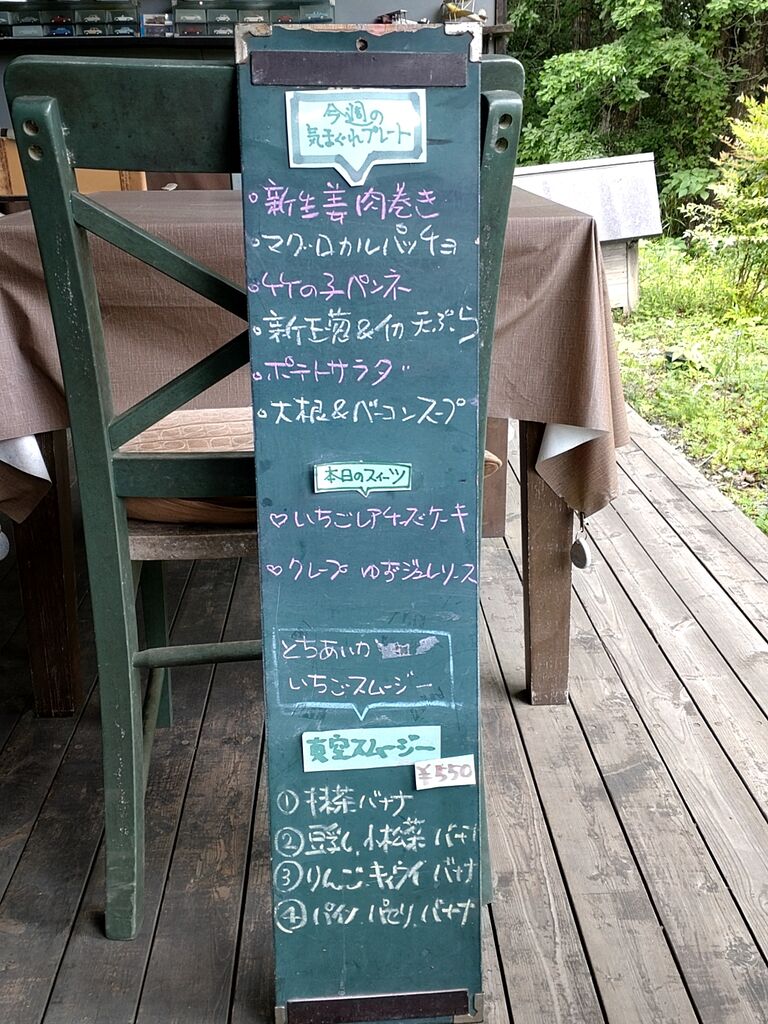 今週の
気まぐれプレート
新生姜肉巻き
マグロカルパッチョ
竹の子ペンネ
新玉葱&イカ天ぷら
ポテトサラダ
大根&ベーコンスープ
本日のスイーツ
♡いちごレアチーズケーキ
♡クレープ ゆずジュレソース
とちあいか
いちごスムージー
真空スムージー
¥550
① 抹茶バナナ
② 豆乳、小松菜 バナナ
③ りんご、キウイ バナナ
④ パイン、パセリ、バナナ